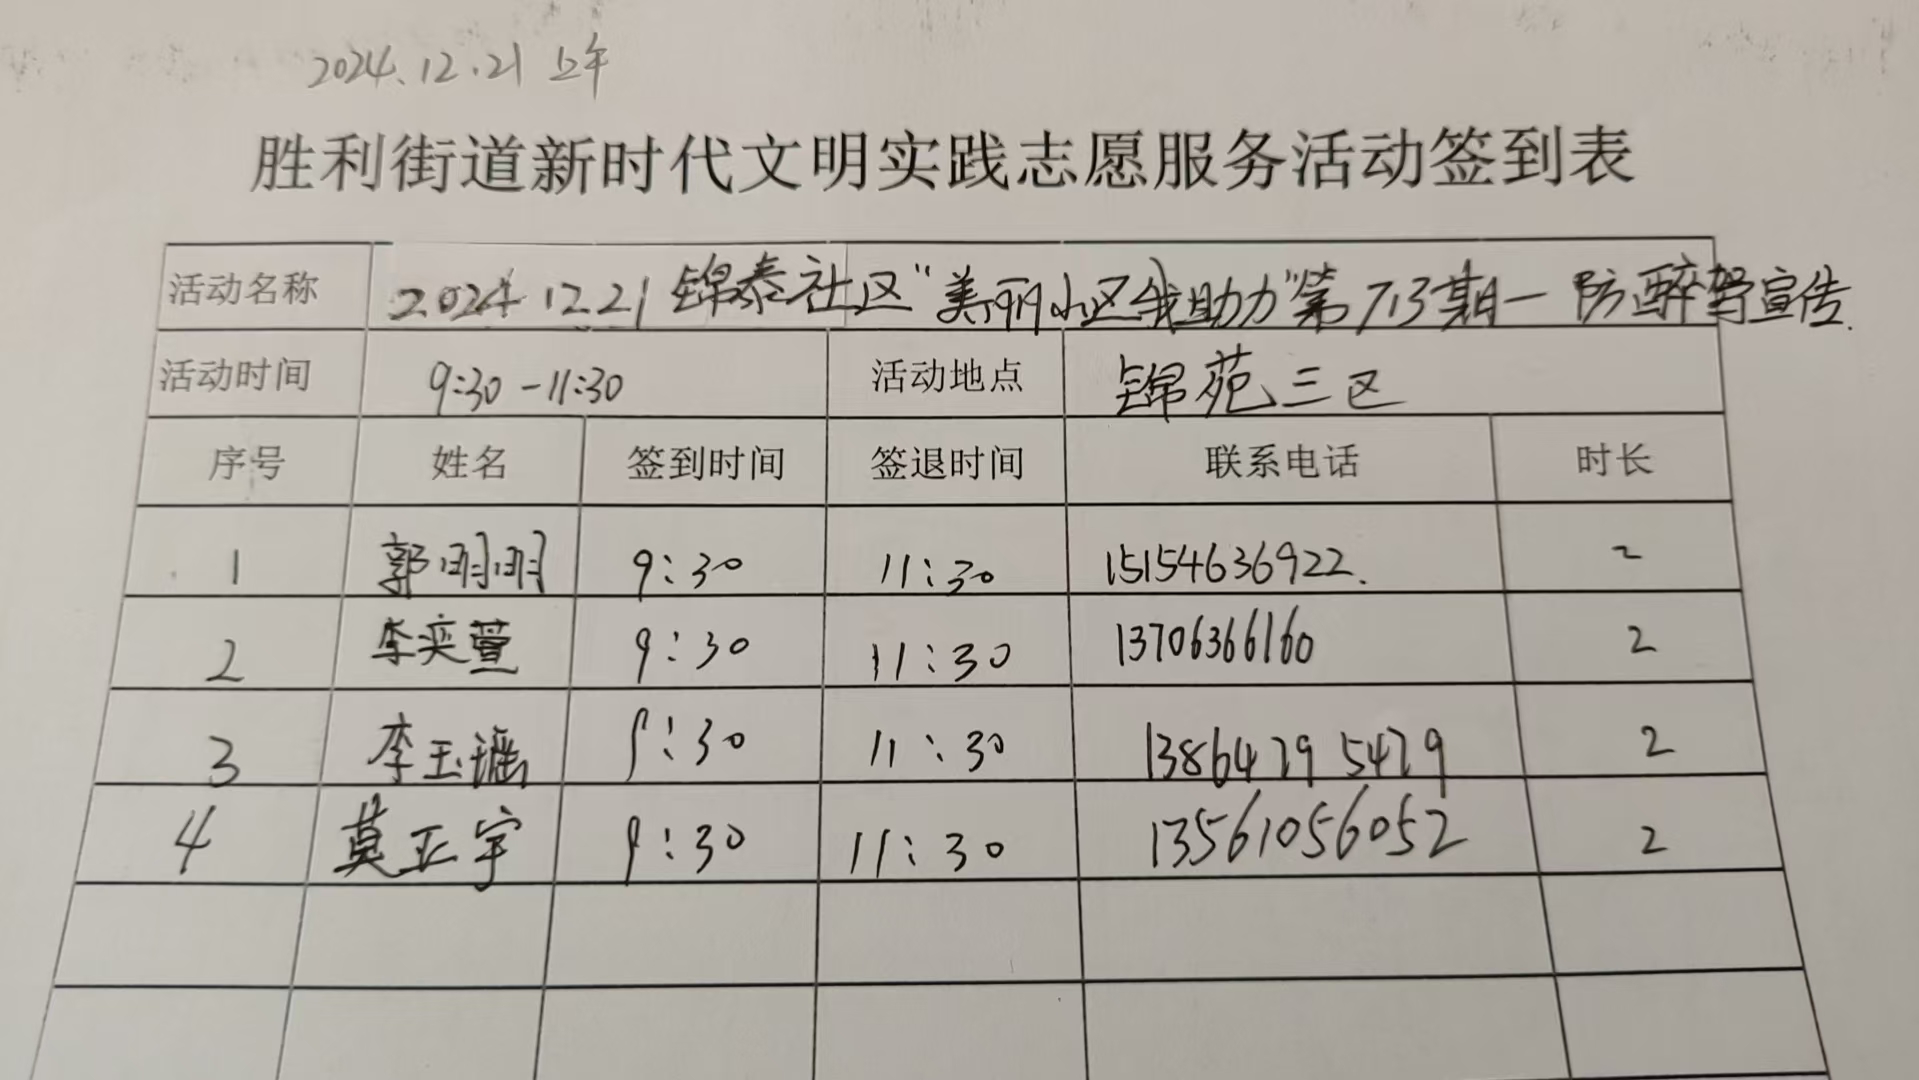 2024.12.21 上午
胜利街道新时代文明实践志愿服务活动签到表
活动名称 2024.12.21锦泰社区“美丽小区我助力”第713期—防醉驾宣传.
活动时间 9:30-11:30 活动地点 锦苑三区
序号 姓名 签到时间 签退时间 联系电话 时长
1 郭明明 9:30 11:30 15154636922. 2
2 李奕萱 9:30 11:30 13706366160 2
3 李玉瑶 9:30 11:30 13864795479 2
4 莫正宇 9:30 11:30 13561056052 2